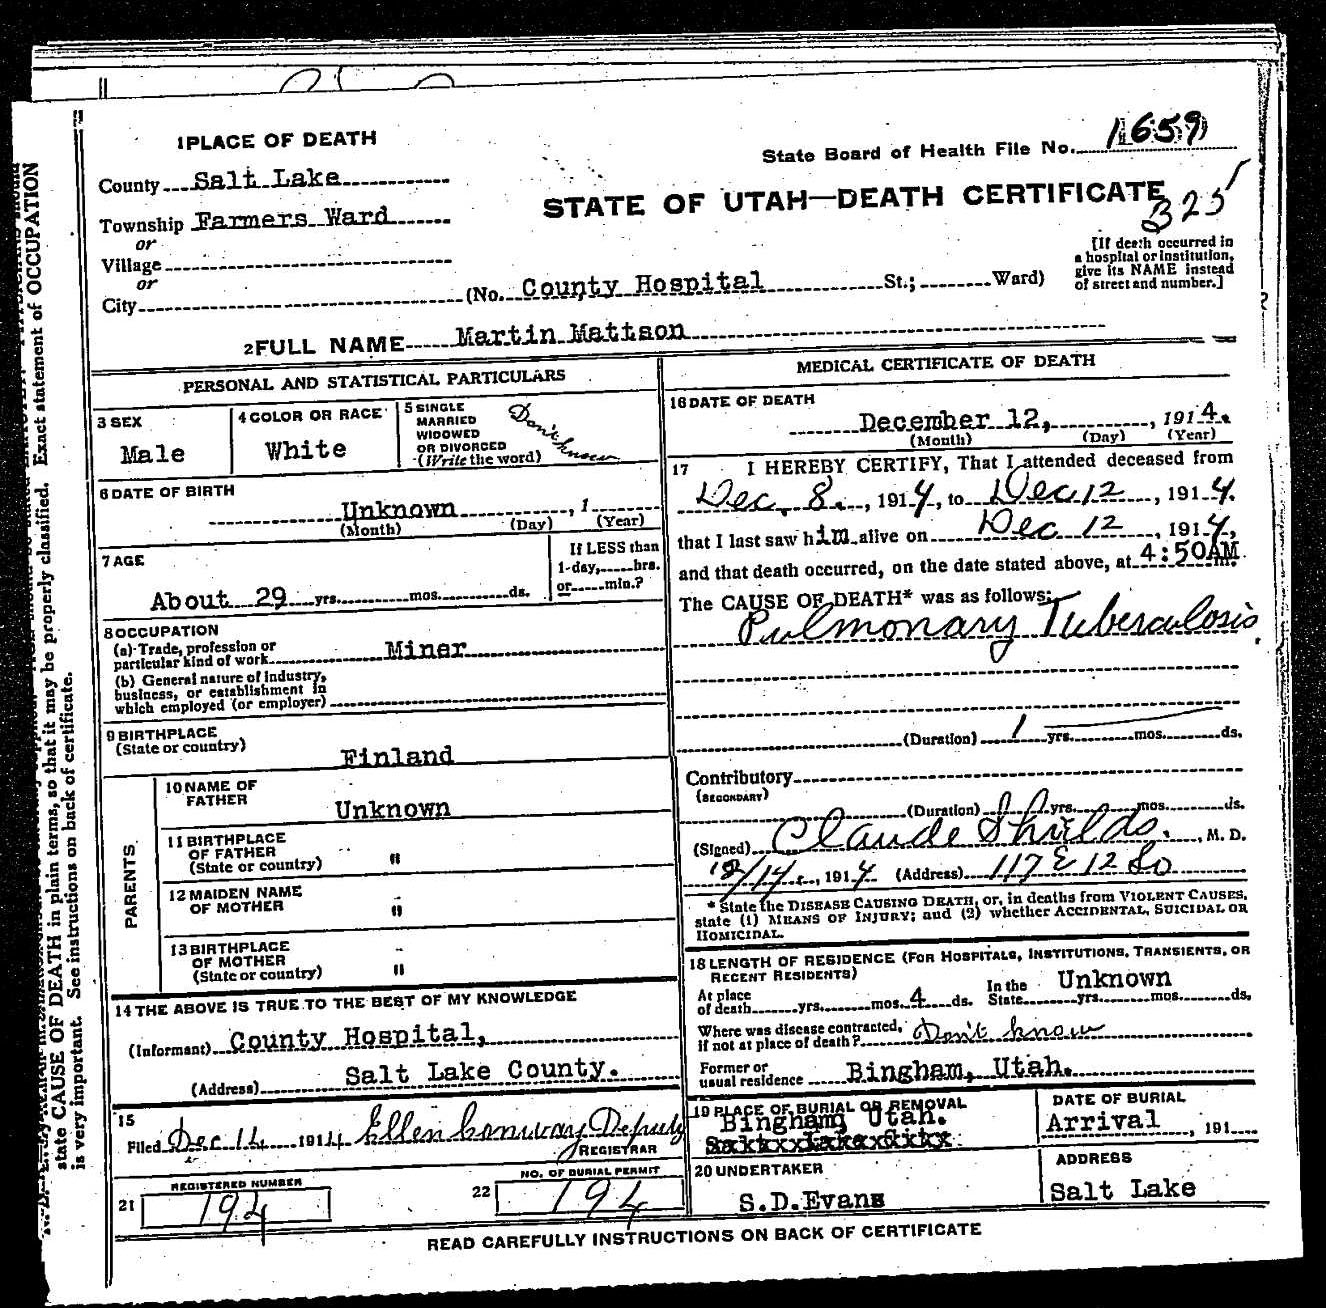 1 PLACE OF DEATH
County Salt Lake
Township Farmers Ward
or
Village
or
City (No. County Hospital St.; Ward)
State Board of Health File No. 1659
STATE OF UTAH—DEATH CERTIFICATE
325
[If death occurred in
a hospital or institution,
give its NAME instead
of street and number.]
2 FULL NAME Martin Mattson
PERSONAL AND STATISTICAL PARTICULARS
3 SEX
Male
4 COLOR OR RACE
White
5 SINGLE
MARRIED
WIDOWED
OR DIVORCED
(Write the word)
Don't know
6 DATE OF BIRTH
Unknown, 1
(Month) (Day) (Year)
7 AGE
About 29 yrs. mos. ds.
If LESS than
1-day, hrs.
or min.?
8 OCCUPATION
(a) Trade, profession or
particular kind of work Miner
(b) General nature of industry,
business, or establishment in
which employed (or employer)
9 BIRTHPLACE
(State or country)
Finland
PARENTS
10 NAME OF
FATHER
Unknown
11 BIRTHPLACE
OF FATHER
(State or country) "
12 MAIDEN NAME
OF MOTHER "
13 BIRTHPLACE
OF MOTHER
(State or country) "
14 THE ABOVE IS TRUE TO THE BEST OF MY KNOWLEDGE
(Informant) County Hospital,
(Address) Salt Lake County.
15
Filed Dec 14 1914 Ellen Conway Deputy
REGISTRAR
REGISTERED NUMBER
21 194
NO. OF BURIAL PERMIT
22 194
MEDICAL CERTIFICATE OF DEATH
16 DATE OF DEATH
December 12, , 1914.
(Month) (Day) (Year)
17 I HEREBY CERTIFY, That I attended deceased from
Dec. 8., 1914, to Dec 12, 1914.
that I last saw him alive on Dec 12, 1914,
and that death occurred, on the date stated above, at 4:50AM m.
The CAUSE OF DEATH* was as follows:
Pulmonary Tuberculosis.
(Duration) 1 yrs. mos. ds.
Contributory
(SECONDARY)
(Duration) yrs. mos. ds.
(Signed) Claude Shields., M. D.
12/14, 1914 (Address) 117 E 12 So
* State the DISEASE CAUSING DEATH, or, in deaths from VIOLENT CAUSES,
state (1) MEANS OF INJURY; and (2) whether ACCIDENTAL, SUICIDAL OR
HOMICIDAL.
18 LENGTH OF RESIDENCE (FOR HOSPITALS, INSTITUTIONS, TRANSIENTS, OR
RECENT RESIDENTS)
At place
of death yrs. mos. 4 ds.
In the
State Unknown yrs. mos. ds.
Where was disease contracted,
if not at place of death? Don't know
Former or
usual residence Bingham, Utah.
19 PLACE OF BURIAL OR REMOVAL
Bingham, Utah.
DATE OF BURIAL
Arrival , 191
20 UNDERTAKER
S.D.Evans
ADDRESS
Salt Lake
READ CAREFULLY INSTRUCTIONS ON BACK OF CERTIFICATE
Exact statement of OCCUPATION
state CAUSE OF DEATH in plain terms, so that it may be properly classified.
is very important. See instructions on back of certificate.